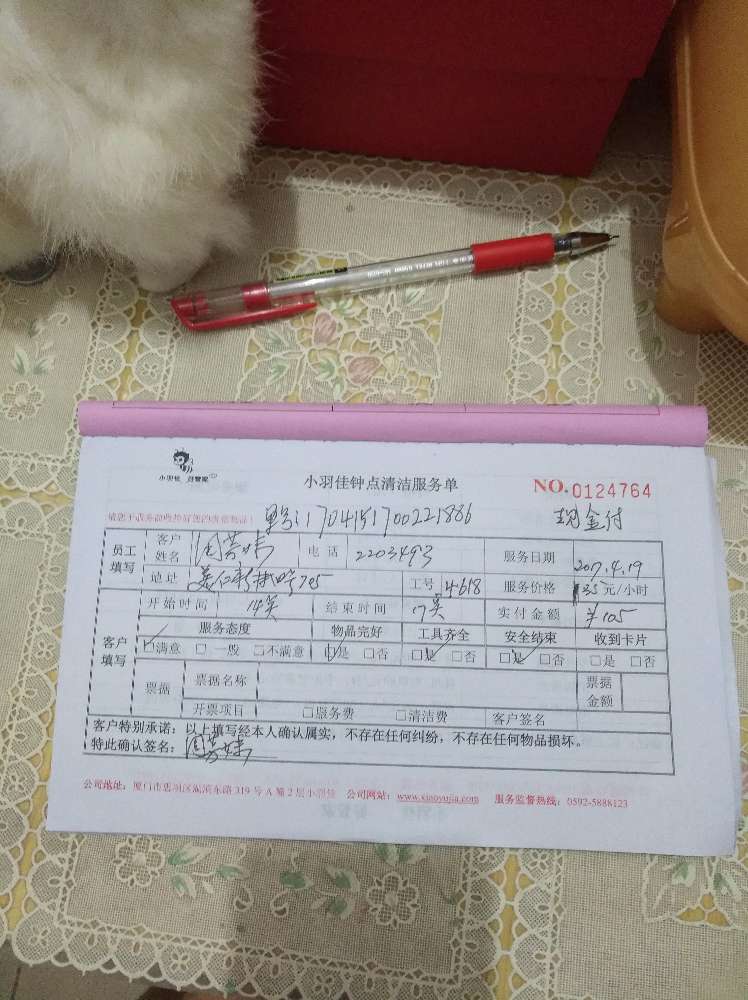 小羽佳 好管家
小羽佳钟点清洁服务单
NO.0124764
单号:1704151700221886 现金付
员工填写 客户姓名 电话 2203493 服务日期 2017.4.19
地址 工号 服务价格 35元/小时
客户填写 开始时间 14 结束时间 17 实付金额 ¥105
服务态度 物品完好 工具齐全 安全结束 收到卡片
☑满意 □一般 □不满意 ☑是 □否 ☑是 □否 ☑是 □否 □是 □否
票据 票据名称 票据金额
开票项目 □服务费 □清洁费 客户签名
客户特别承诺：以上填写经本人确认属实，不存在任何纠纷，不存在任何物品损坏。
特此确认签名：
公司地址：厦门市思明区 319号A幢2层小羽佳 公司网站：www.xiaoyujia.com 服务监督热线：0592-5888123